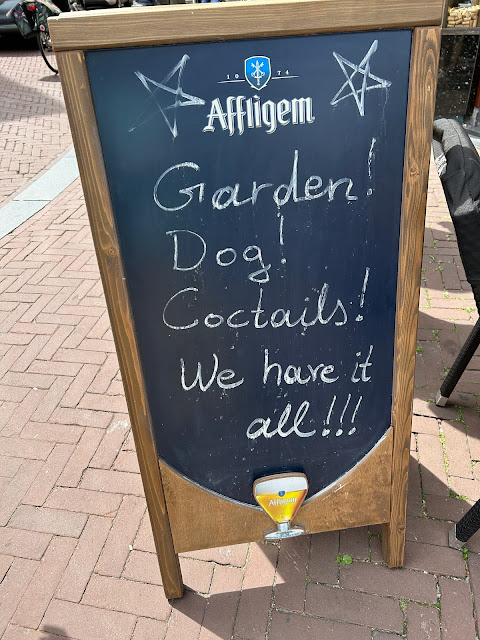 10 74
Affligem
Garden!
Dog!
Coctails!
We have it
all!!!
Affligem